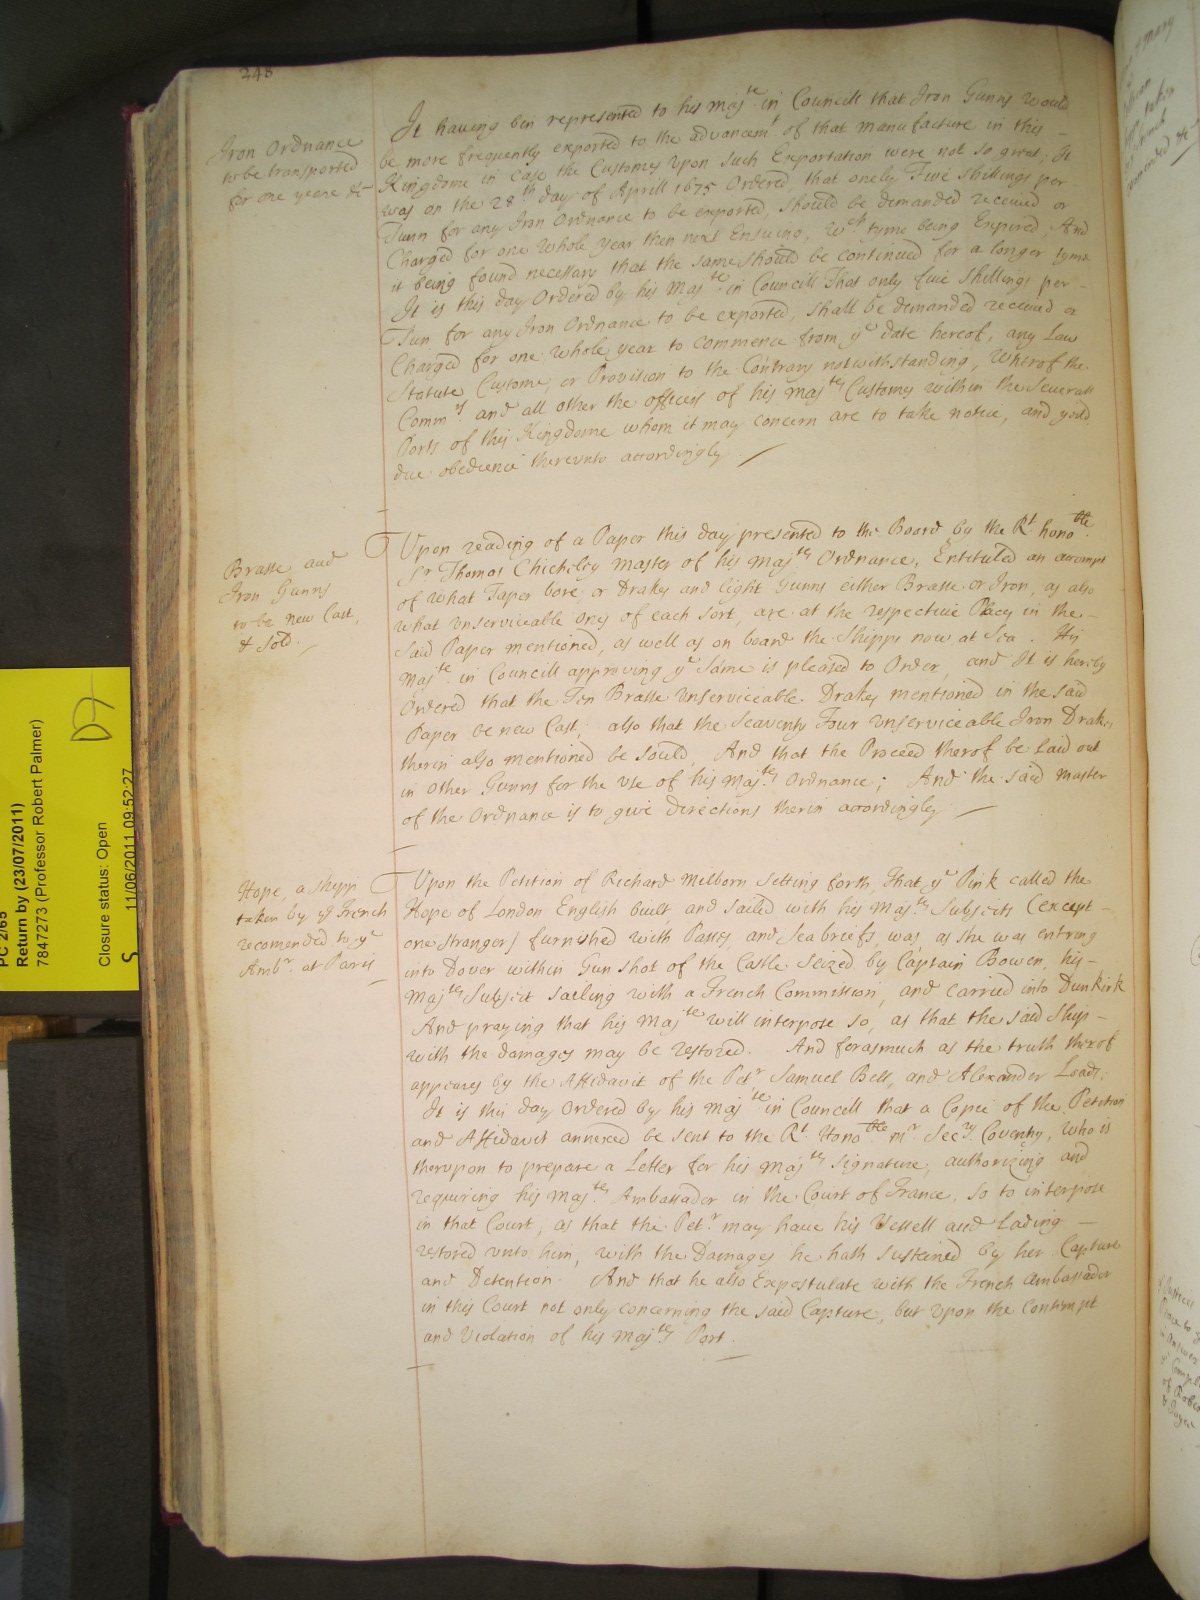 248
Iron Ordnance
to be transported
for one yeare &c
It having ben represented to his Maj^te in Councill that Iron Gunns would
be more frequently exported to the advancem^t of that manufacture in this –
Kingdome in case the Customes upon such Exportation were not so great; It
was on the 28^th day of Aprill 1675 Ordered, that onely Five Shillings per –
Tunn for any Iron Ordnance to be exported, should be demanded received or
Charged for one whole year then next Ensuing, w^ch tyme being Expired, And
it being found necessary that the same should be continued for a longer tyme
It is this day Ordered by his Maj^te in Councill That only five Shillings per –
Tun, for any Iron Ordnance to be exported, shall be demanded received or
Charged for one whole year to commence from y^e date hereof, any Law
Statute Custome, or Provision to the Contrary notwithstanding, Wherof the
Comm^rs and all other the officers of his Maj^tes Customes within the Severall
Ports of this Kingdome whom it may concern are to take notice, and yeild
due obedience therevnto accordingly
Brasse and
Iron Gunns
to be new Cast,
& Sold.
Upon reading of a Paper this day presented to the Board by the R^t hono^ble
S^r Thomas Chicheley Master of his Maj^tes Ordnance, Entituled an accompt
of what Taper bore, or Drakes and light Gunns either Brasse or Iron, as also
what vnserviceable ones of each sort, are at the respective Places in the –
said Paper mentioned, as well as on board the Shipps now at Sea. His
Maj^te in Councill approving y^e Same is pleased to Order, and It is hereby
Ordered that the Ten Brasse vnserviceable Drakes mentioned in the said
Paper be new Cast; also that the Seaventy Four vnserviceable Iron Drakes
therin also mentioned be Sould, And that the Proceed therof be laid out
in other Gunns for the vse of his Maj^tes Ordnance; And the said Master
of the Ordnance is to give Directions therin accordingly
Hope, a shipp
taken by y^e French
recomended to y^e
Amb^r at Paris
Upon the Petition of Richard Melborn setting forth, That y^e Pink called the
Hope of London English built, and sailed with his Maj^tes Subjects (except –
one stranger) furnished with Passes and Seabriefs, was, as she was entring
into Dover within Gun shot of the Castle seized by Captain Bowen, his –
Maj^tes Subject sailing with a French Commission, and carried into Dunkirk
And praying that his Maj^te will interpose so, as that the said Ship –
with the damages may be restored. And forasmuch as the truth therof
appeares by the Affidavit of the Pet^r, Samuel Bell, and Alexander Loads:
It is this day Ordered by his Maj^te in Councill that a Copie of the Petition
and Affidavit annexed be sent to the R^t Hono^ble m^r Sec^ry Coventry, who is
therupon to prepare a Letter for his Maj^tes Signature, authorizing and
requiring his Maj^tes Ambassador in the Court of France, so to interpose
in that Court, as that the Pet^r may have his Vessell and Lading –
restored vnto him, with the Damages he hath sustained by her Capture
and Detention. And that he also Expostulate with the French Ambassador
in this Court not only concerning the said Capture, but vpon the contempt
and Violation of his Maj^tes Port.
PC 2/65
Return by (23/07/2011)
7847273 (Professor Robert Palmer)
Closure status: Open
S 11/06/2011 09:52:27